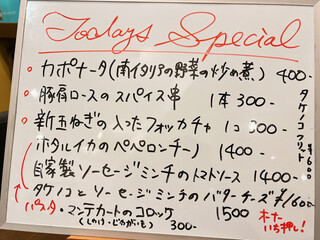 Todays Special
・カポナータ(南イタリアの野菜の炒め煮) 400-
・豚肩ロースのスパイス串 1本 300-
・新玉ねぎの入ったフォッカチャ 1コ 300-
ホタルイカのペペロンチーノ 1400-
自家製ソーセージミンチのトマトソース 1400-
タケノコとソーセージミンチのバターチーズ ¥1600-
パスタ
・マンテカートのコロッケ 1500
300-
タケノコフリット ¥600
オーナーいち押し!